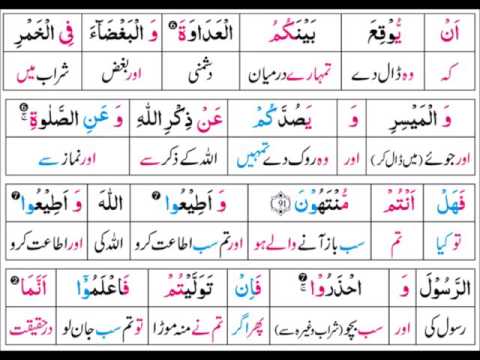 اَنْ يُّوْقِعَ بَيْنَكُمُ الْعَدَاوَةَ وَ الْبَغْضَآءَ فِي الْخَمْرِ
کہ وہ ڈال دے تمہارے درمیان دشمنی اور بغض شراب میں
وَ الْمَيْسِرِ وَ يَصُدَّكُمْ عَنْ ذِكْرِ اللّٰهِ وَ عَنِ الصَّلٰوةِ ۚ
اور جوئے (میں ڈال کر) اور وہ روک دے تمہیں اللہ کے ذکر سے اور نماز سے
فَهَلْ اَنْتُمْ مُّنْتَهُوْنَ ﴿91﴾ وَ اَطِيْعُوا اللّٰهَ وَ اَطِيْعُوا
تو کیا تم سب باز آنے والے ہو اور تم سب اطاعت کرو اللہ کی اور اطاعت کرو
الرَّسُوْلَ وَ احْذَرُوْا ۚ فَاِنْ تَوَلَّيْتُمْ فَاعْلَمُوْۤا اَنَّمَا
رسول کی اور سب بچو (شراب وغیرہ سے) پھر اگر تم نے منہ موڑا تو تم سب جان لو درحقیقت